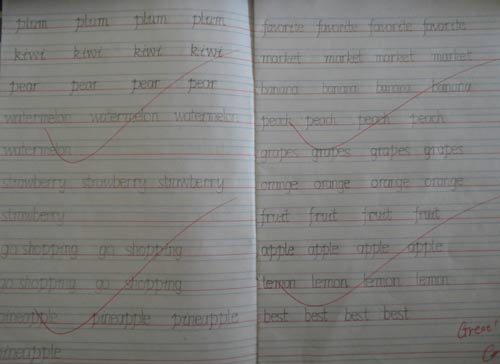 plum plum plum plum
kiwi kiwi kiwi kiwi
pear pear pear pear
watermelon watermelon watermelon
watermelon
strawberry strawberry strawberry
strawberry
go shopping go shopping
go shopping go shopping
pineapple pineapple pineapple
pineapple
favorite favorite favorite favorite
market market market market
banana banana banana banana
peach peach peach peach
grapes grapes grapes grapes
orange orange orange orange
fruit fruit fruit fruit
apple apple apple apple
lemon lemon lemon lemon
best best best best
Great!